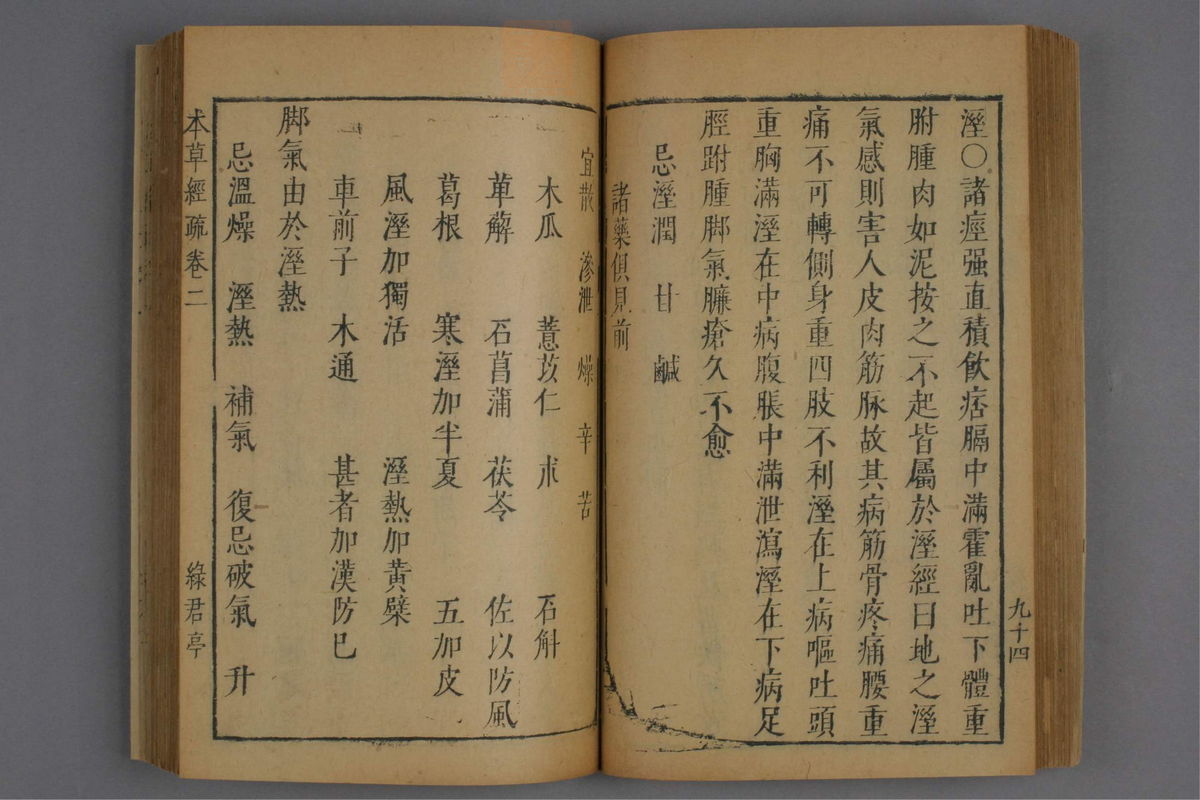 溼○諸痙强直積飲痞膈中滿霍亂吐下體重
胕腫肉如泥按之不起皆屬於溼經曰地之溼
氣感則害人皮肉筋脉故其病筋骨疼痛腰重
痛不可轉側身重四肢不利溼在上病嘔吐頭
重胸滿溼在中病腹脹中滿泄瀉溼在下病足
脛跗腫脚氣臁瘡久不愈
忌溼潤　甘　鹹
諸藥俱見前
九十四
宜散　滲泄　燥　辛　苦
木瓜　薏苡仁　朮　石斛
萆薢　石菖蒲　茯苓　佐以防風
葛根　寒溼加半夏　五加皮
風溼加獨活　溼熱加黄檗
車前子　木通　甚者加漢防巳
脚氣由於溼熱
忌溫燥　溼熱　補氣　復忌破氣　升
本草經疏卷二
綠君亭